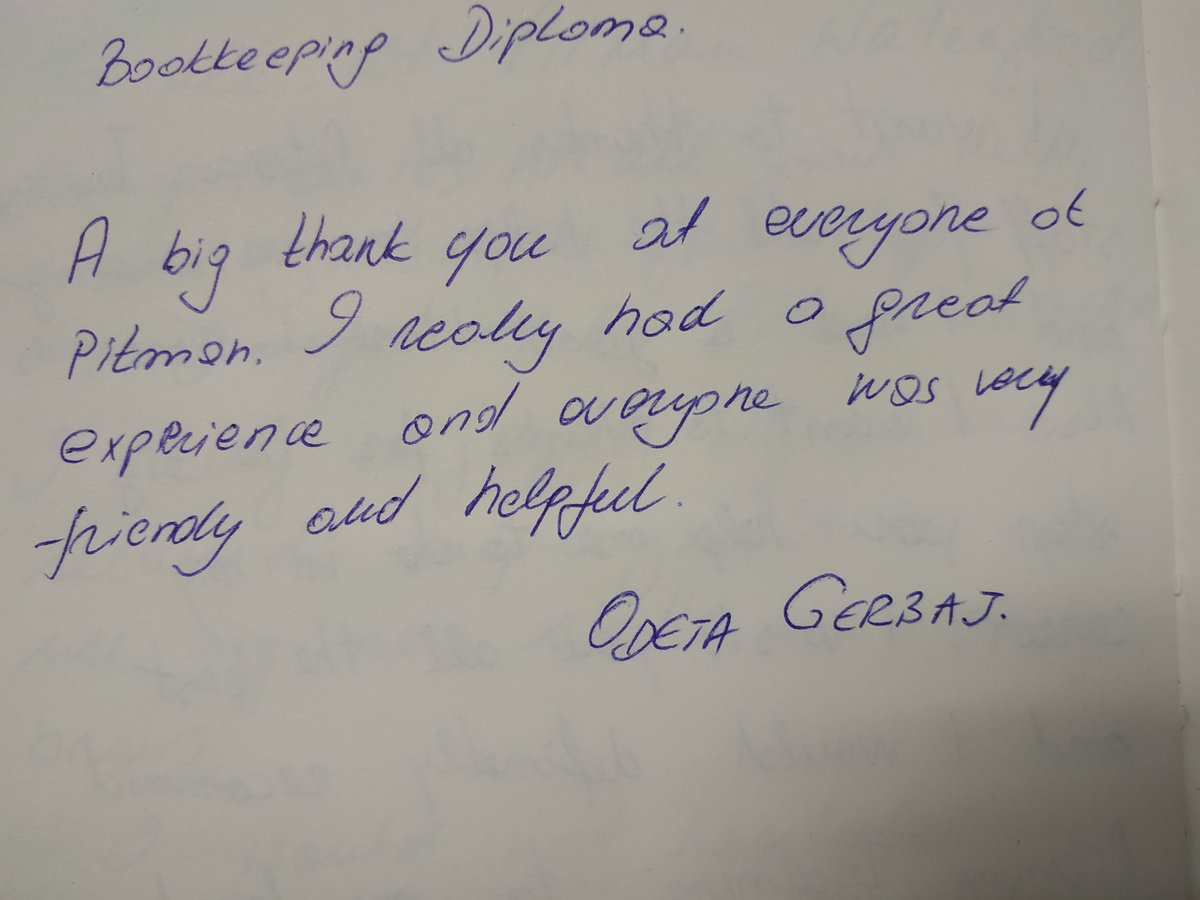 Bookkeeping Diploma.
A big thank you at everyone at
Pitman. I really had a great
experience and everyone was very
friendly and helpful.
ODETA GERBAJ.